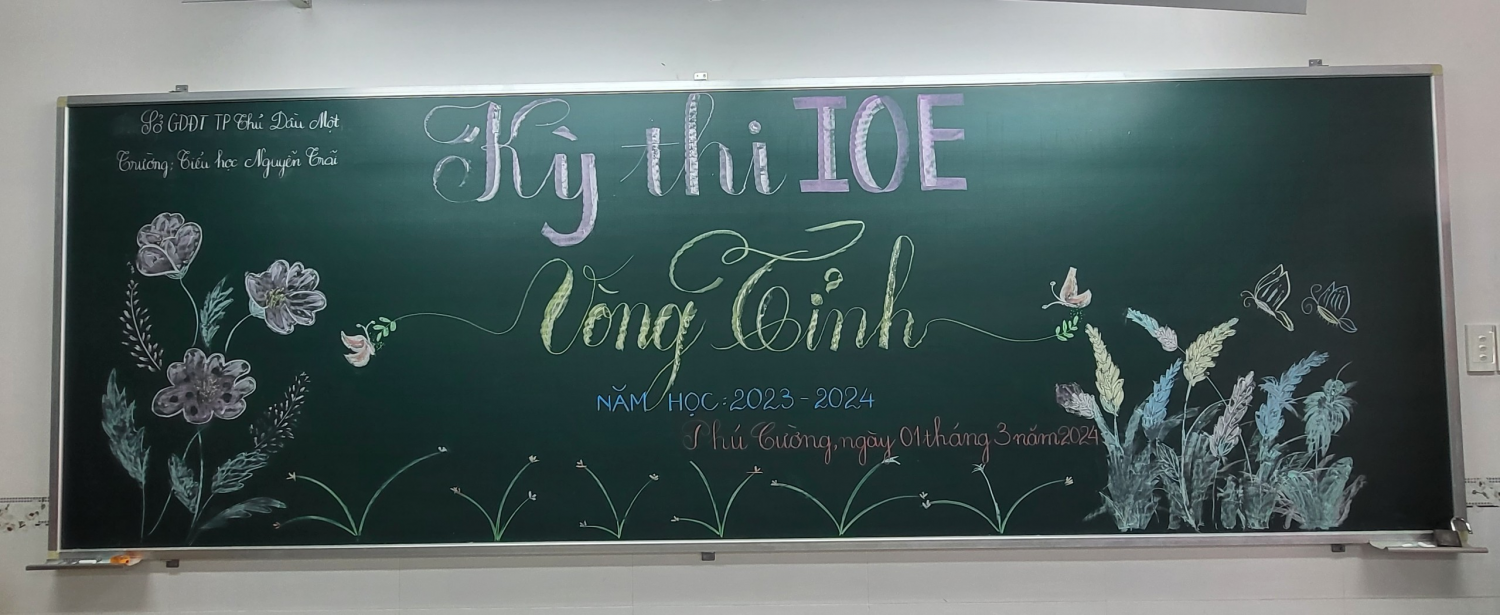 Sở GDĐT TP Thủ Dầu Một
Trường: Tiểu học Nguyễn Trãi
Kỳ thi IOE
Vòng Tỉnh
NĂM HỌC: 2023-2024
Phú Cường, ngày 01 tháng 3 năm 2024